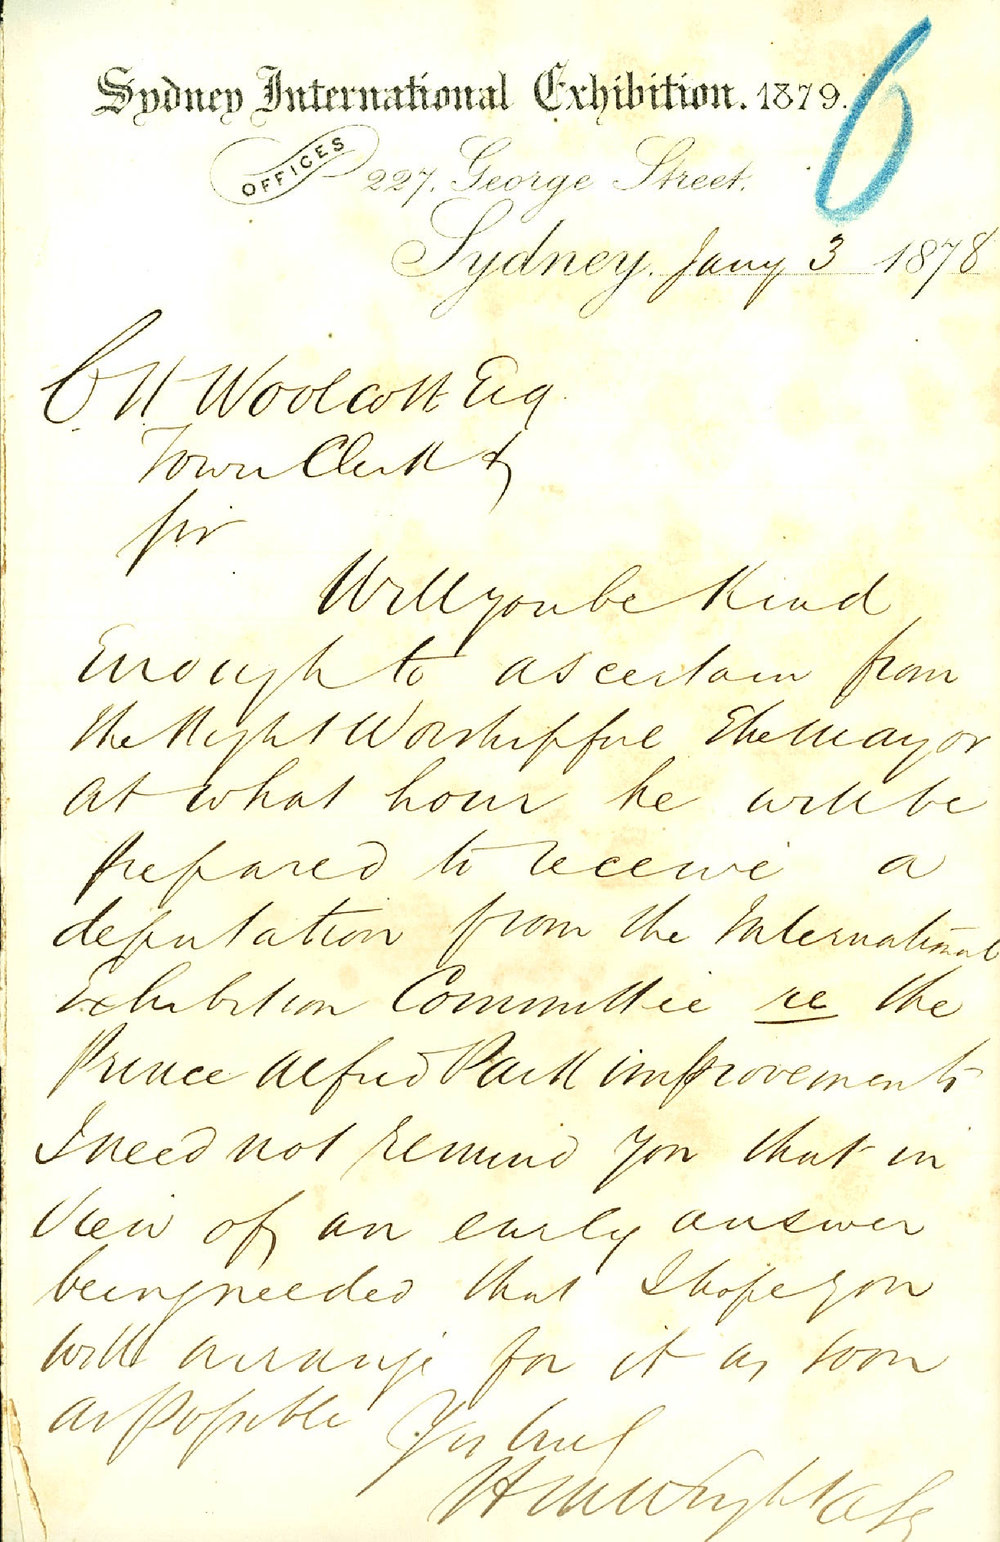 6
Sydney International Exhibition. 1879.
OFFICES
227, George Street.
Sydney, Jany 3 1878
C H Woolcott Esq
Town Clerk &
Sir
Will you be Kind
Enough to ascertain from
the Right Worshipful The Mayor
at what hour he will be
prepared to receive a
deputation from the International
Exhibition Committee re the
Prince Alfred Park improvements
I need not remind you that in
view of an early answer
being needed that I hope you
will arrange for it as soon
as possible
Yrs truly
Wright